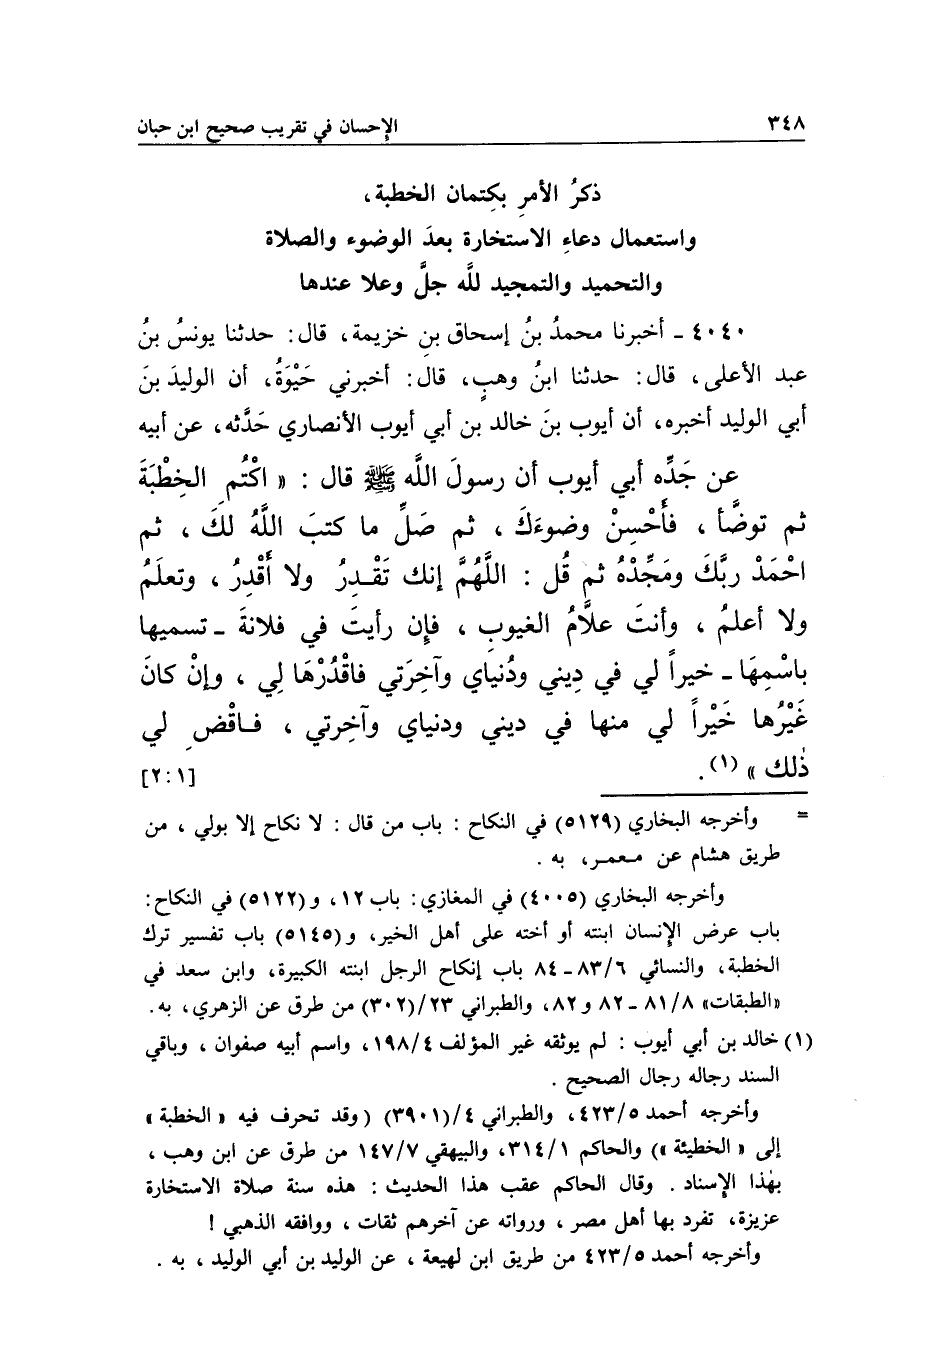 ٣٤٨ الإحسان في تقريب صحيح ابن حبان
ذكرُ الأمرِ بكِتمان الخطبة،
واستعمال دعاءِ الاستخارة بعدَ الوضوء والصلاة
والتحميد والتمجيد للَّه جلَّ وعلا عندها
٤٠٤٠ ـ أخبرنا محمدُ بنُ إسحاق بنِ خزيمة، قال: حدثنا يونسُ بنُ
عبد الأعلى، قال: حدثنا ابنُ وهبٍ، قال: أخبرني حَيْوَةُ، أن الوليدَ بنَ
أبي الوليد أخبره، أن أيوب بنَ خالد بن أبي أيوب الأنصاري حَدَّثه، عن أبيه
عن جَدِّه أبي أيوب أن رسولَ اللَّه ﷺ قال : « اكْتُم الخِطْبَةَ
ثم توضَّأ ، فأَحْسِنْ وضوءَكَ ، ثم صَلِّ ما كتبَ اللَّهُ لكَ ، ثم
احْمَدْ ربَّكَ ومَجِّدْهُ ثم قُل : اللَّهُمَّ إنك تَقْدِرُ ولا أَقْدِرُ ، وتعلَمُ
ولا أعلمُ ، وأنتَ علَّامُ الغيوبِ ، فإن رأيتَ في فلانةَ ـ تسميها
باسْمِهَا ـ خيراً لي في دِيني ودُنياي وآخِرَتي فاقْدُرْهَا لِي ، وإنْ كانَ
غَيْرُها خَيْراً لي منها في ديني ودنياي وآخِرتي ، فاقْضِ لي
ذٰلك » (١) . [١ : ٢]
= وأخرجه البخاري (٥١٢٩) في النكاح : باب من قال : لا نكاح إلا بولي ، من
طريق هشام عن معمر، به .
وأخرجه البخاري (٤٠٠٥) في المغازي: باب ١٢، و (٥١٢٢) في النكاح:
باب عرض الإنسان ابنته أو أخته على أهل الخير، و(٥١٤٥) باب تفسير ترك
الخطبة، والنسائي ٨٣/٦ ـ ٨٤ باب إنكاح الرجل ابنته الكبيرة، وابن سعد في
«الطبقات» ٨١/٨ ـ ٨٢ و ٨٢، والطبراني ٢٣/(٣٠٢) من طرق عن الزهري، به.
(١) خالد بن أبي أيوب : لم يوثقه غير المؤلف ١٩٨/٤، واسم أبيه صفوان ، وباقي
السند رجاله رجال الصحيح .
وأخرجه أحمد ٤٢٣/٥، والطبراني ٤/(٣٩٠١) (وقد تحرف فيه « الخطبة »
إلى « الخطيئة ») والحاكم ٣١٤/١، والبيهقي ١٤٧/٧ من طرق عن ابن وهب ،
بهٰذا الإسناد . وقال الحاكم عقب هذا الحديث : هذه سنة صلاة الاستخارة
عزيزة، تفرد بها أهل مصر ، ورواته عن آخرهم ثقات ، ووافقه الذهبي !
وأخرجه أحمد ٤٢٣/٥ من طريق ابن لهيعة ، عن الوليد بن أبي الوليد ، به .